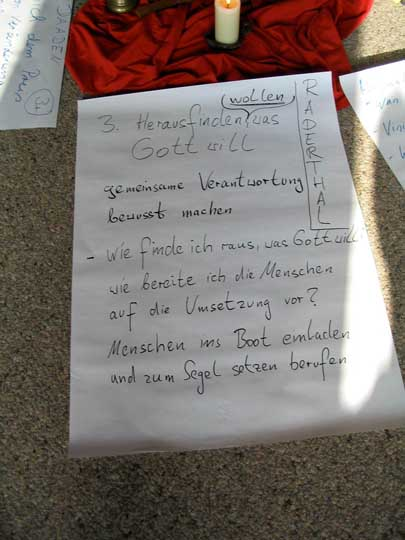 wollen
3. Herausfinden, was
Gott will
RADERTHAL
gemeinsame Verantwortung
bewusst machen
- Wie finde ich raus, was Gott will
wie bereite ich die Menschen
auf die Umsetzung vor?
Menschen ins Boot einladen
und zum Segel setzen berufen